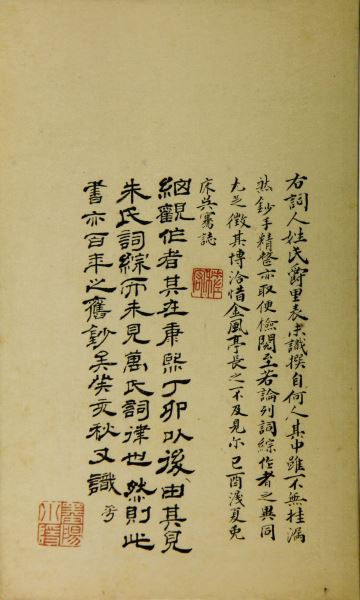 右詞人姓氏爵里表未識撰自何人其中雖不無挂漏
然鈔手精整亦取便檢閱至若論列詞綜作者之異同
尤足徵其博洽惜金風亭長之不及見尔己酉淺夏兎
床吳騫誌
細觀作者其在康熙丁卯以後由其見
朱氏詞綜而未見萬氏詞律也然則此
書亦百年之舊鈔矣癸亥秋又識